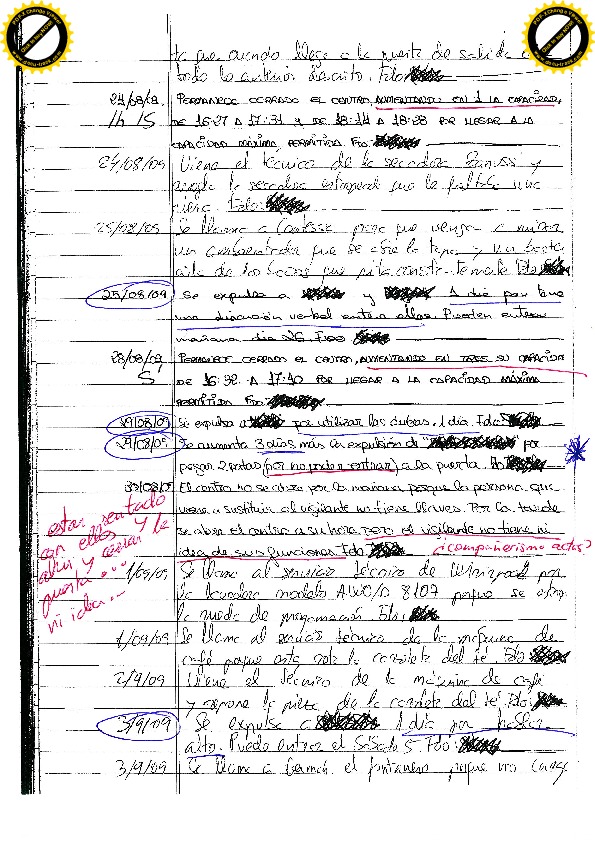 to que cuando llega a la puerta de salida
todo lo anterior descrito. Fdo
24/08/09 PERMANECE CERRADO EL CENTRO, AUMENTANDO EN 1 LA CAPACIDAD,
1h 15 DE 16:27 A 17:31 Y DE 18:14 A 18:28 POR LLEGAR A LA
CAPACIDAD MÁXIMA PERMITIDA. Fdo
24/08/09 Viene el técnico de la secadora Zanussi y
arregla la secadora estropeada que le faltaba una
pieza. Fdo:
25/08/09 Se llama a para que vengan a mirar
un ambientador que se abre la tapa y un
de los que pita constantemente Fdo
25/08/09 Se expulsa a y 1 día por tener
una discusión verbal entre ellas. Pueden entrar
mañana día 26. Fdo
28/08/09 PERMANECE CERRADO EL CENTRO, AUMENTANDO EN TRES SU CAPACIDAD
DE 16:32 A 17:40 POR LLEGAR A LA CAPACIDAD MÁXIMA
PERMITIDA Fdo
29/08/09 Se expulsa a por utilizar las duchas, 1 día. Fdo
29/08/09 Se aumenta 3 días más la expulsión de " " por
pegar 2 patadas (por no poder entrar) a la puerta. Fdo
El centro no se abre por la mañana porque la persona que
viene a sustituir al vigilante no tiene llaves. Por la tarde
se abre el centro a su hora pero el vigilante no tiene ni
idea de sus funciones. Fdo ¿(compañerismo actas?
estar sentado
con ellos y
abrir y cerrar la
puerta ...
ni idea ...
1/09/09 Se llama al servicio técnico de Whirlpool por
la lavadora modelo AWO/D 8107 porque se
la rueda de programación. Fdo:
1/09/09 Se llama al servicio técnico de la máquina de
café porque está rota la del té. Fdo
2/9/09 Viene el técnico de la máquina de café
y repone la pieza de la del té. Fdo:
3/9/09 Se expulsa a 1 día por hablar
alto. Puede entrar el Sábado 5. Fdo:
3/9/09 Se llama a Germán el fontanero porque